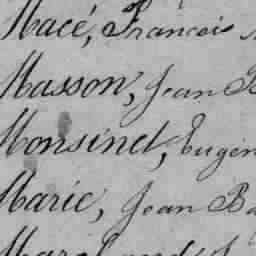 Macé, François
Masson, Jean B
Monsinet, Eugèn
Marie, Jean Ba